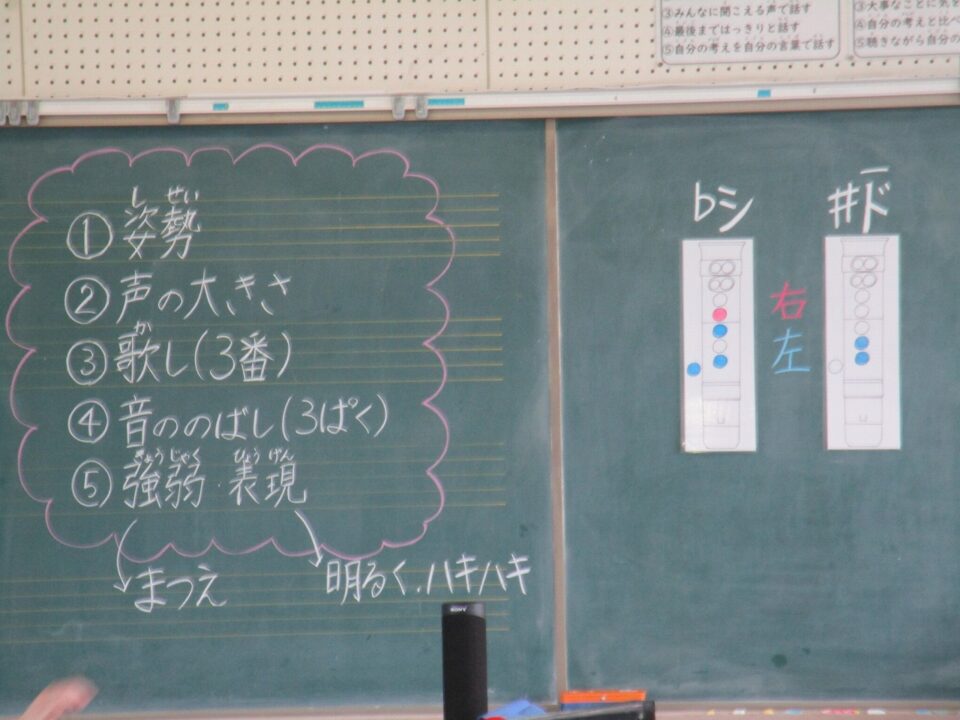 ③みんなに聞こえる声で話す
④最後まではっきりと話す
⑤自分の考えを自分の言葉で話す
③大事なことに気を
④自分の考えと比べ
⑤聴きながら自分の
しせい
①姿勢
②声の大きさ
か
③歌し(3番)
④音ののばし(3ぱく)
きょうじゃく ひょうげん
⑤強弱・表現
まつえ
明るく.ハキハキ
♭シ
♯ド
右
左
SONY